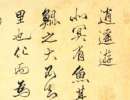 逍遙遊
北冥有魚其
鯤之大不知
里也化而為